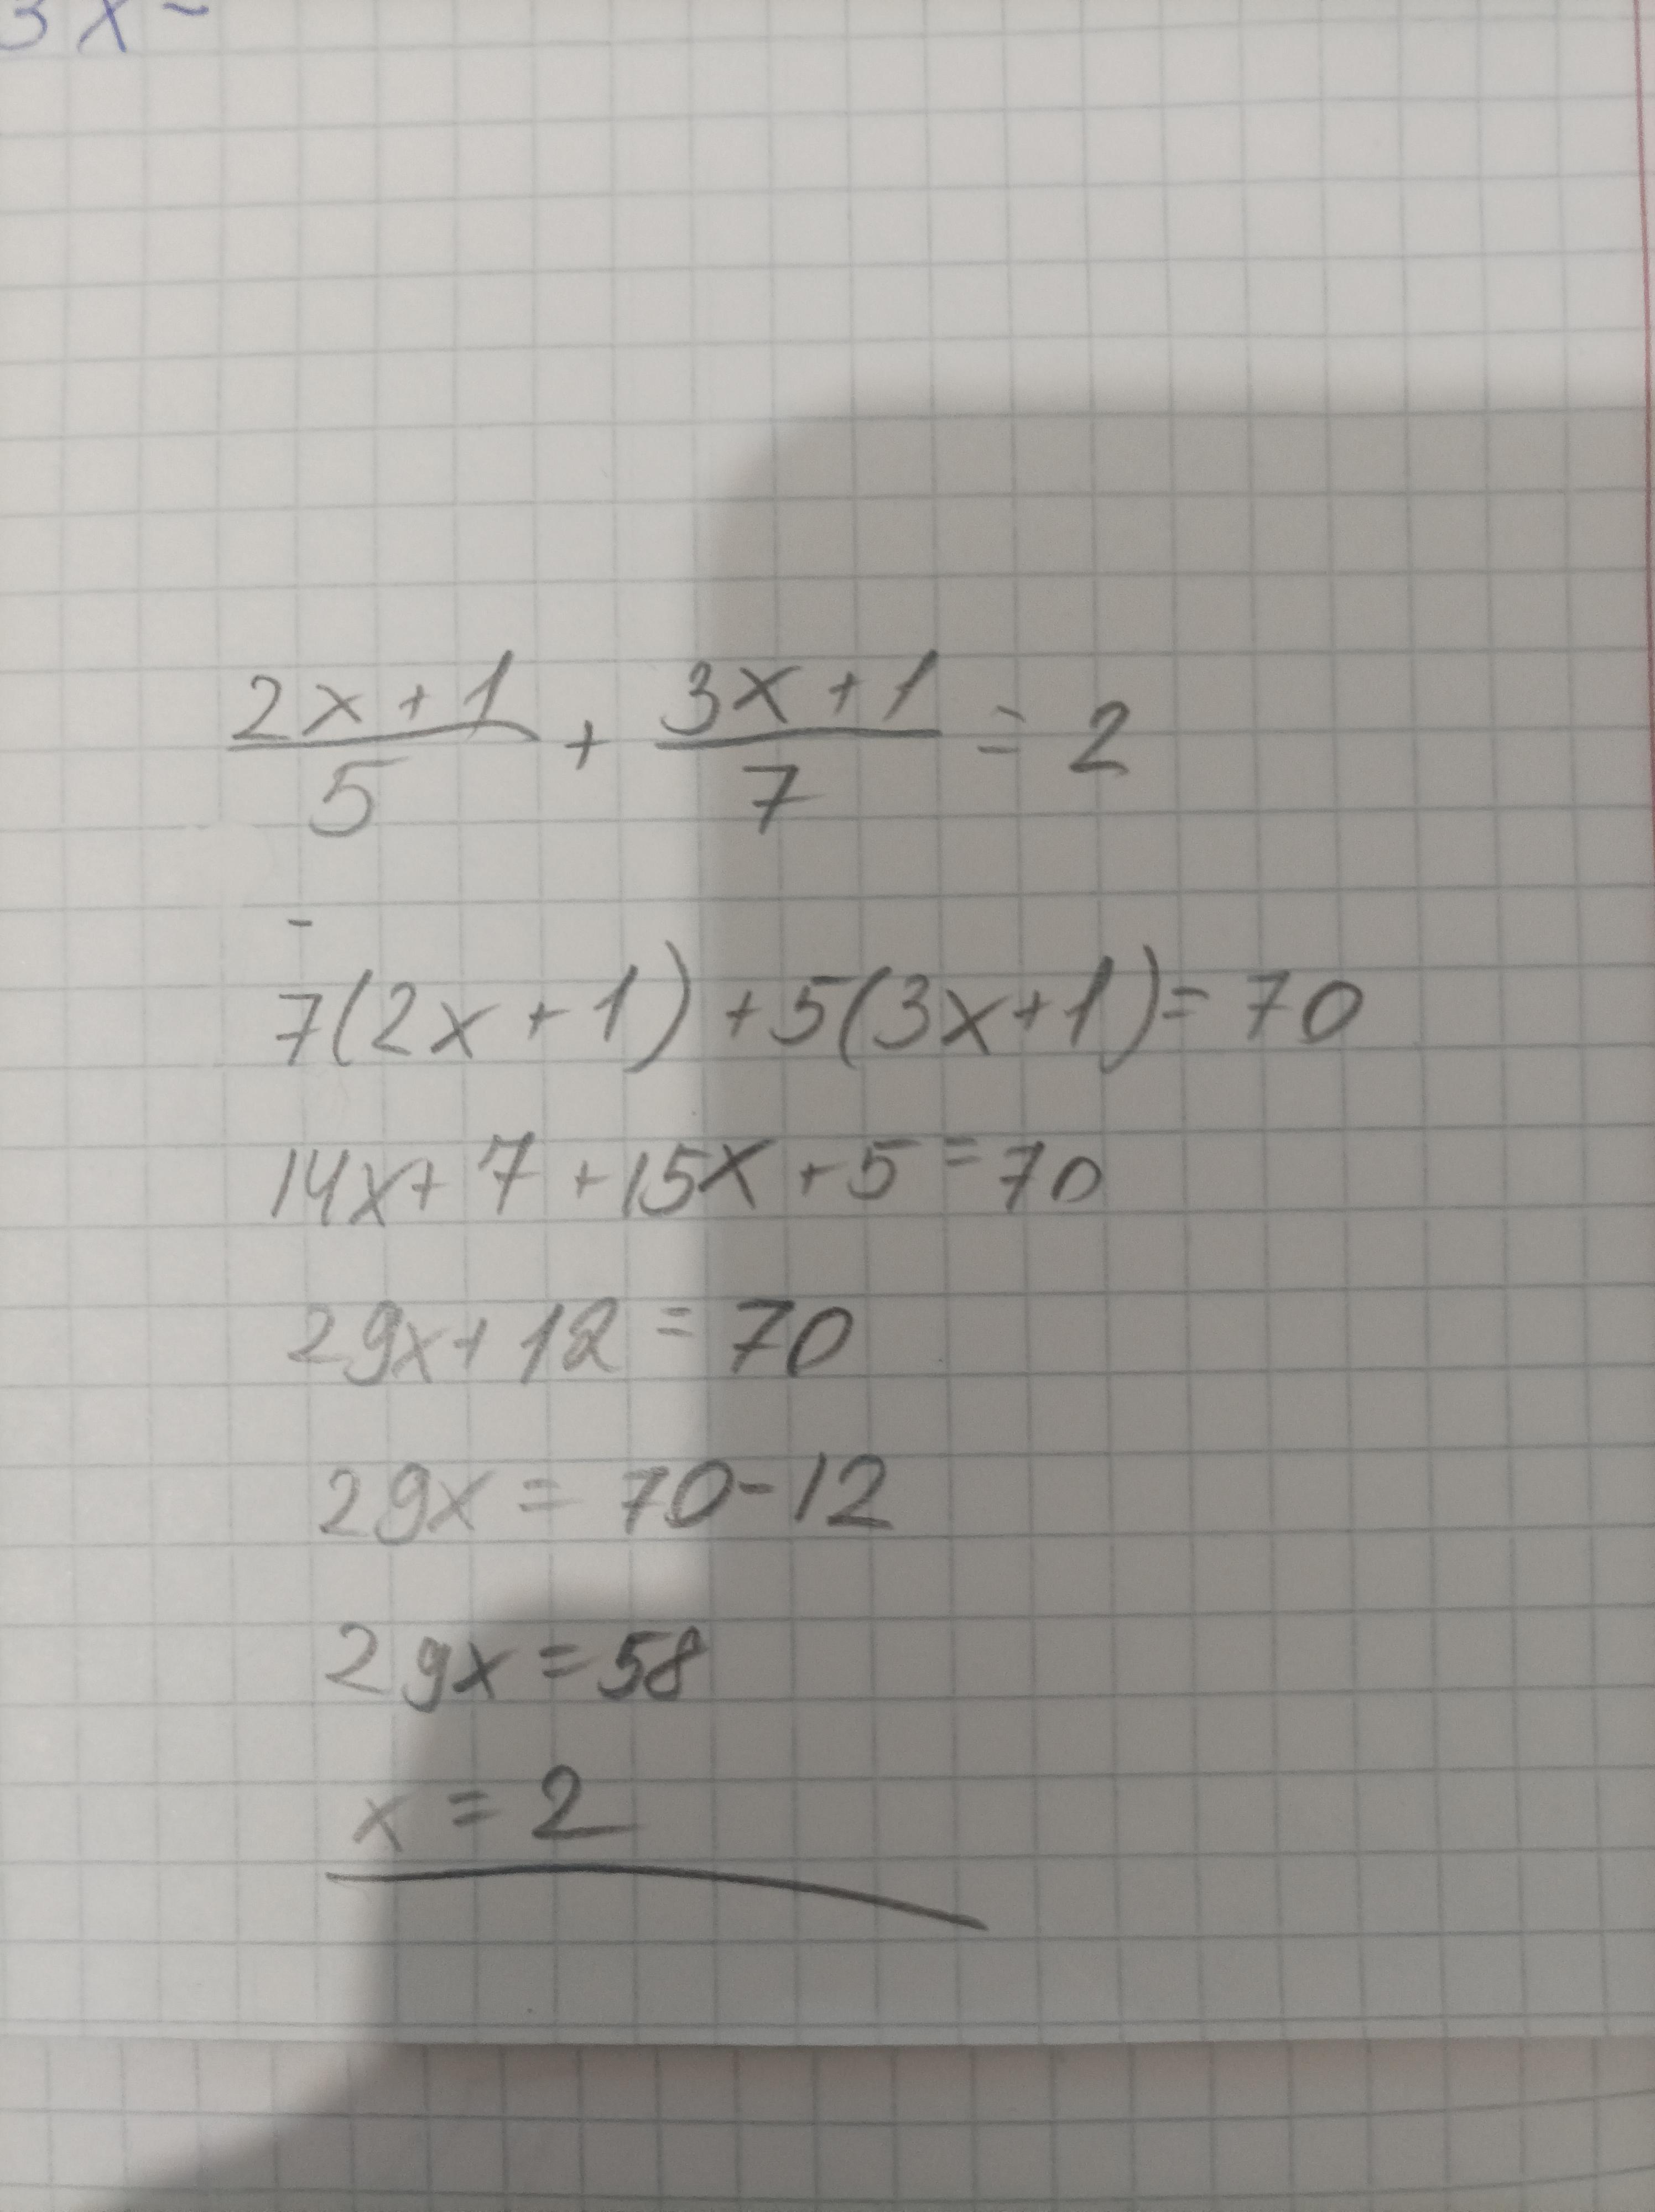 3x-
2x+1/5 + 3x+1/7 = 2
7(2x+1)+5(3x+1)=70
14x+7+15x+5=70
29x+12=70
29x=70-12
29x=58
x=2